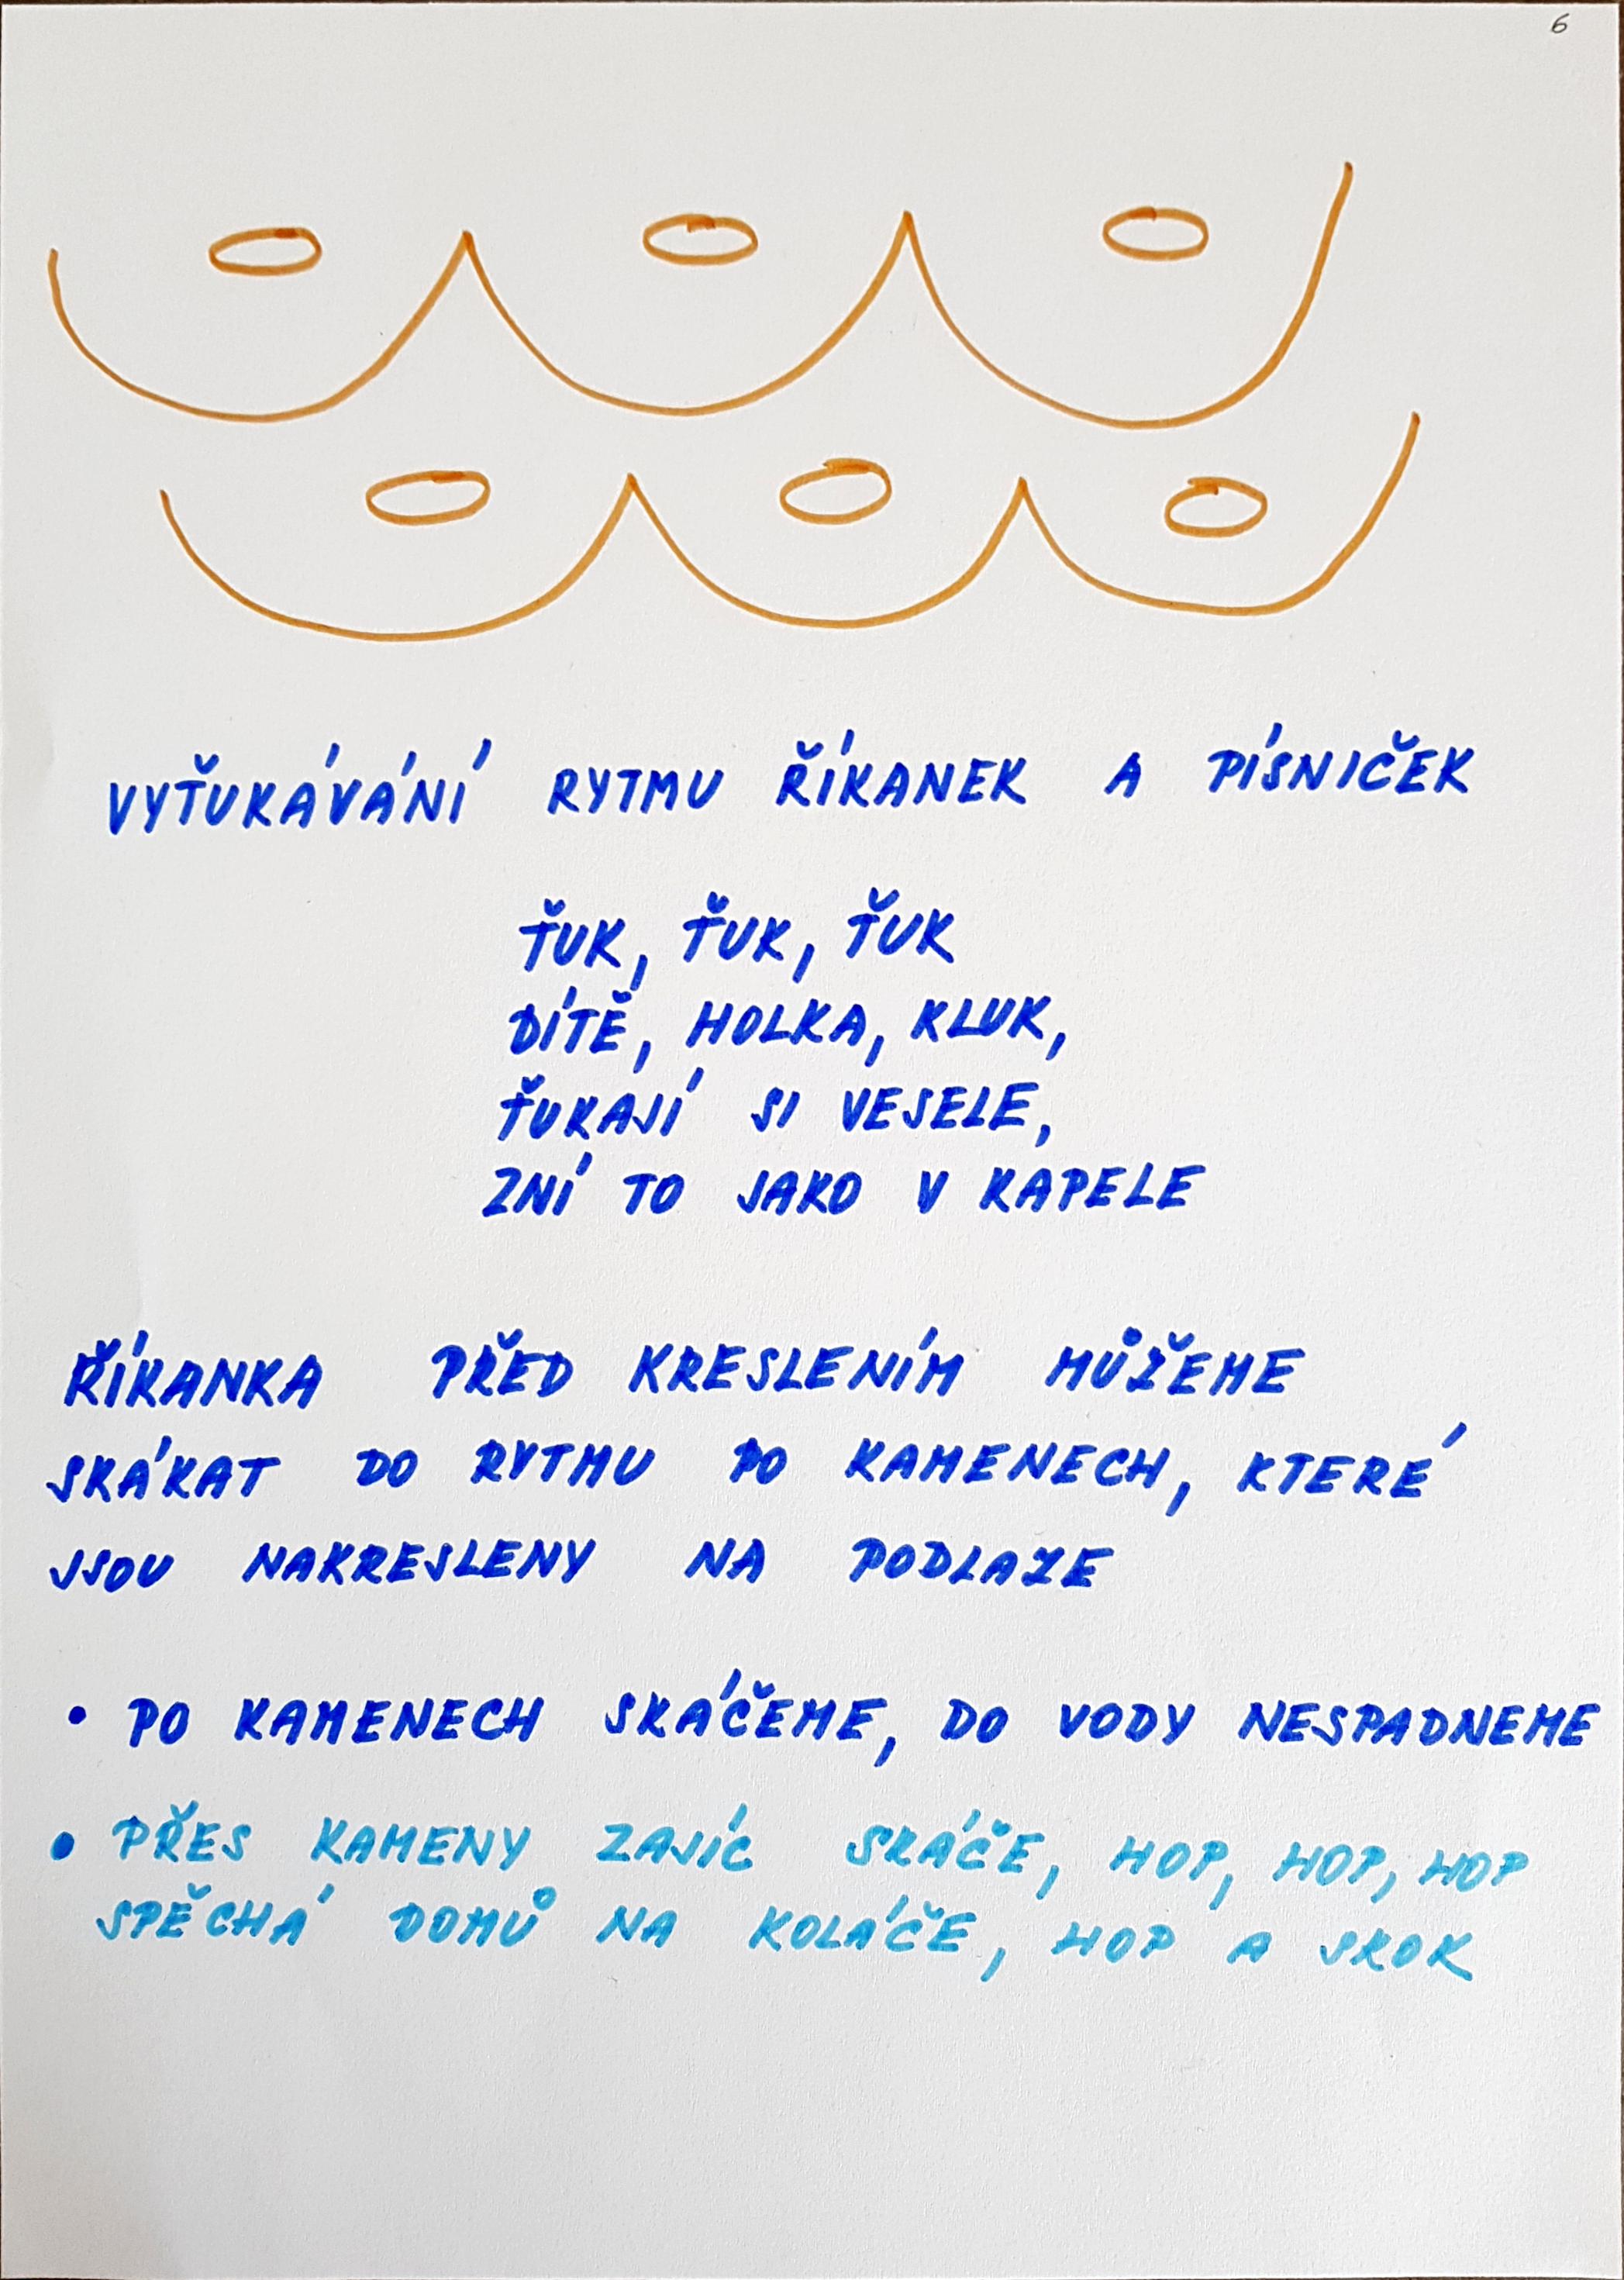 6
VYŤUKÁVÁNÍ RYTMU ŘÍKANEK A PÍSNIČEK
ŤUK, ŤUK, ŤUK
DÍTĚ, HOLKA, KLUK,
ŤUKAJÍ SI VESELE,
ZNÍ TO JAKO V KAPELE
ŘÍKANKA PŘED KRESLENÍM MŮŽEME
SKÁKAT DO RYTMU PO KAMENECH, KTERÉ
JSOU NAKRESLENY NA PODLAZE
• PO KAMENECH SKÁČEME, DO VODY NESPADNEME
• PŘES KAMENY ZAJÍC SKÁČE, HOP, HOP, HOP
SPĚCHÁ DOMŮ NA KOLÁČE, HOP A SKOK